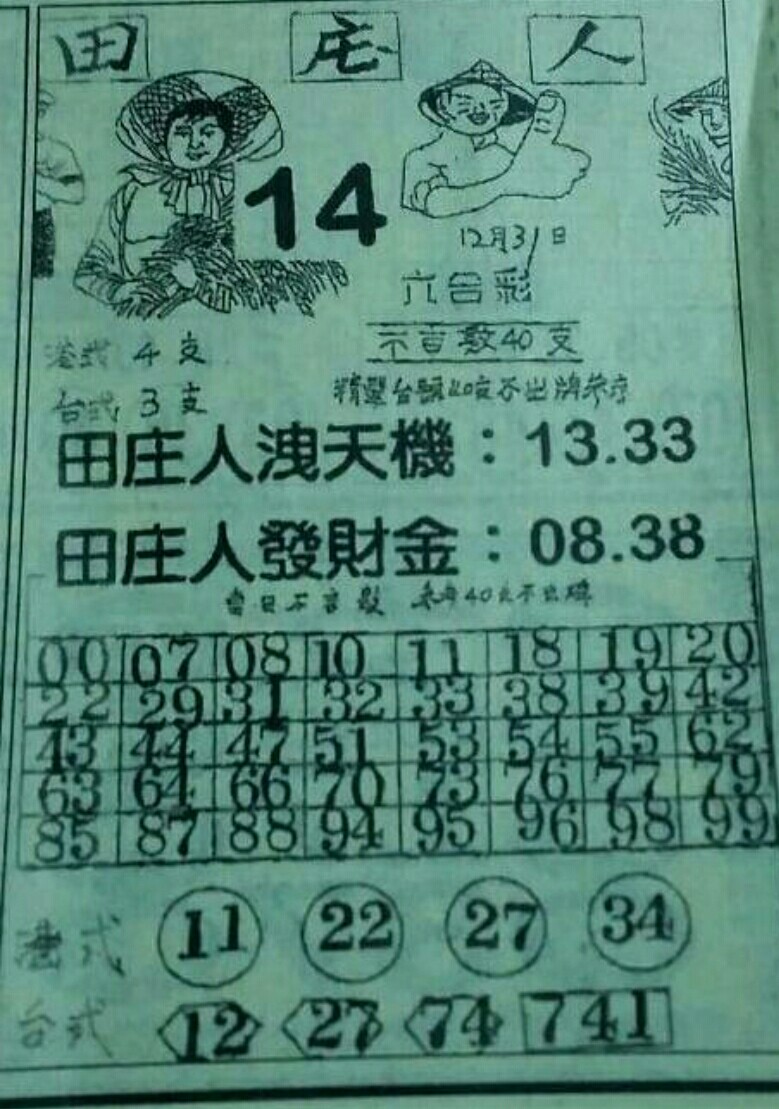 田 庄 人
14
12月31日
六合彩
港式 4 支
不言數40支
台式 3 支
精選台號40支不出牌參考
田庄人洩天機：13.33
田庄人發財金：08.38
當日不言數 40支不出牌
00 07 08 10 11 18 19 20
22 29 31 32 33 38 39 42
43 44 47 51 53 54 55 62
63 64 66 70 73 76 77 79
85 87 88 94 95 96 98 99
港式 11 22 27 34
台式 12 27 74 741